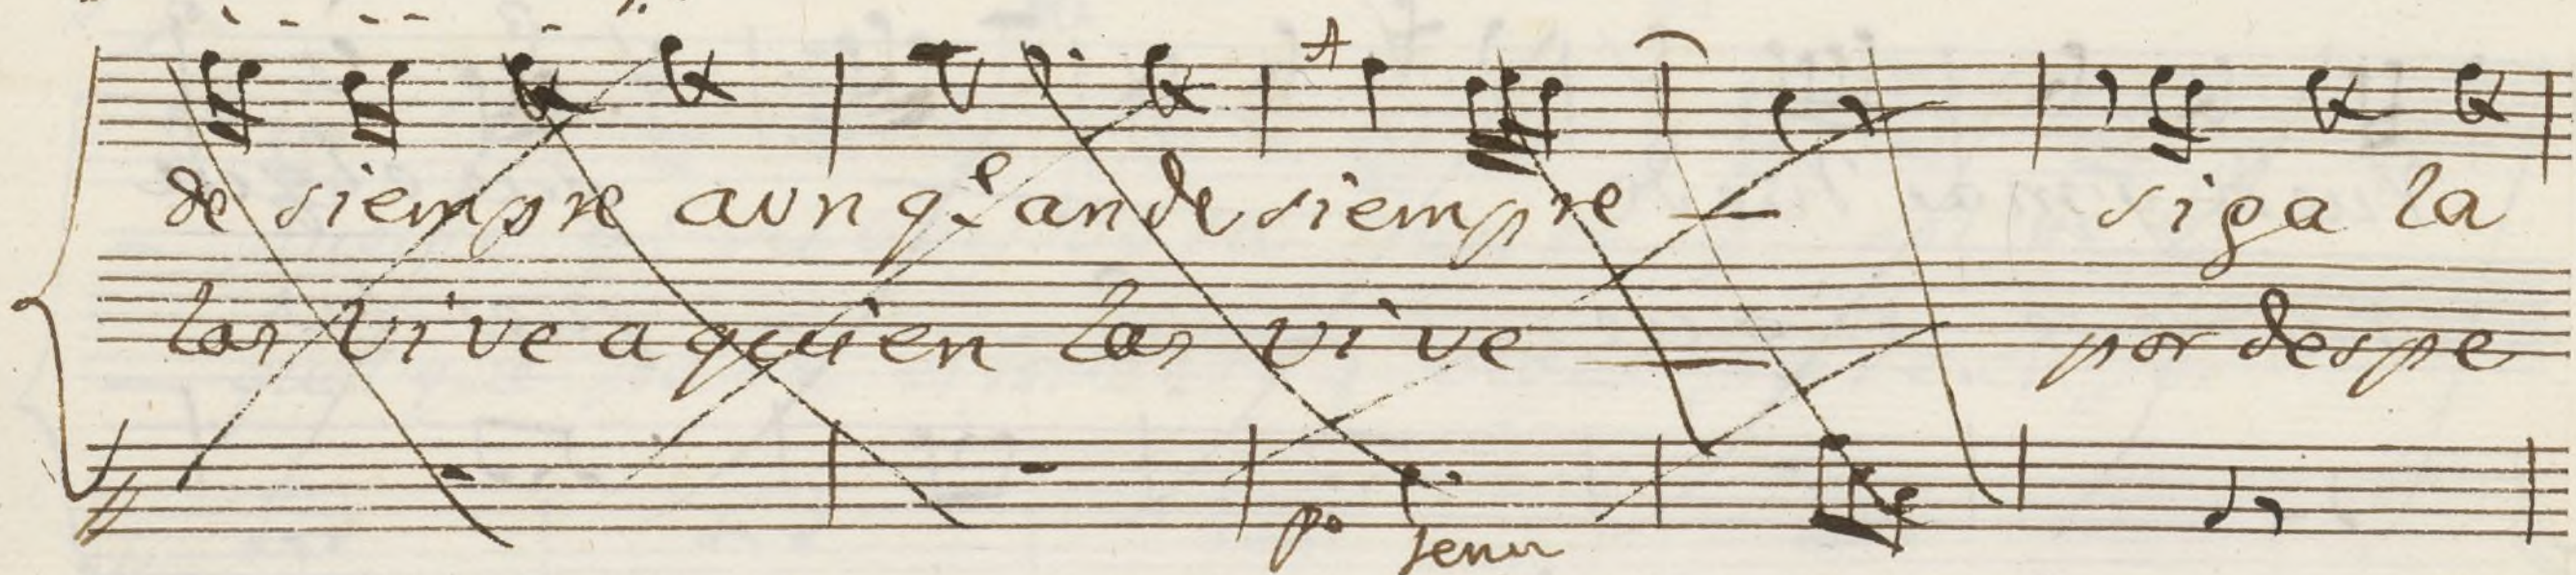 de siempre aunq.e ande siempre — siga la
las vive a quien las vive — por despe
po